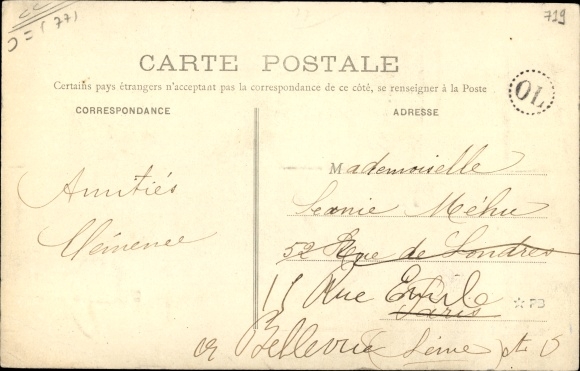 D=(77)
719
CARTE POSTALE
Certains pays étrangers n'acceptant pas la correspondance de ce côté, se renseigner à la Poste
CORRESPONDANCE
ADRESSE
OL
Amitiés
Clémence
Mademoiselle
Léonie Méhu
52 Rue de Londres
15 Rue Emile
Paris
PB
Bellevue (Seine)